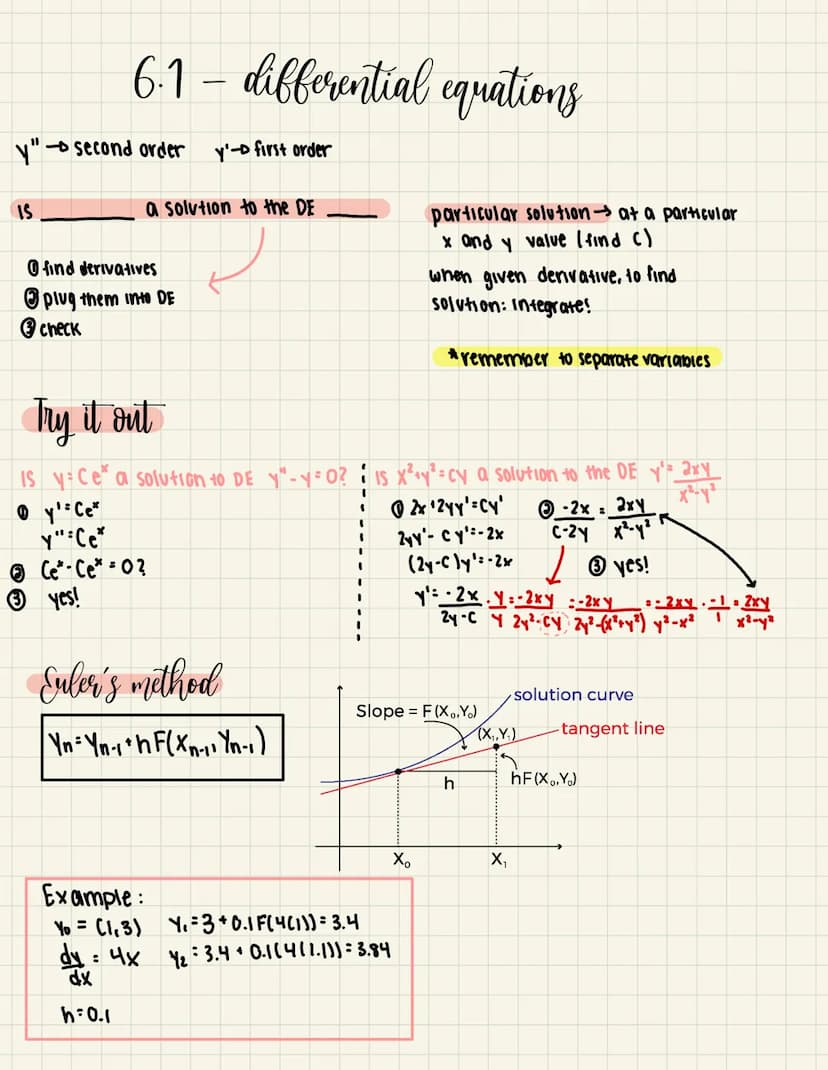 6.1 – differential equations
y" → second order   y' → first order
IS ________ a solution to the DE _____
① find derivatives
② plug them into DE
③ check
particular solution → at a particular
x and y value (find C)
when given derivative, to find
solution: integrate!
*remember to separate variables
Try it out
IS y=Ceˣ a solution to DE y"-y=0?
① y'=Ceˣ
y"=Ceˣ
② Ceˣ-Ceˣ=0?
③ yes!
Is x²+y²=cy a solution to the DE y'= 2xy/(x²-y²)
① 2x+2yy'=Cy'
2yy'-cy'=-2x
(2y-c)y'=-2x
y'= -2x/(2y-c) · y/y = -2xy/(2y²-cy) = -2xy/(2y²-(x²+y²)) = -2xy/(y²-x²) · -1/1 = 2xy/(x²-y²)
② -2x/(c-2y) = 2xy/(x²-y²)
③ yes!
Euler's method
Yn=Yn-1+hF(Xn-1,Yn-1)
Slope = F(X₀,Y₀)
solution curve
(X₁,Y₁)
tangent line
h
hF(X₀,Y₀)
X₀
X₁
Example:
y₀ = (1,3)   y₁=3+0.1F(4(1))=3.4
dy/dx = 4x   y₂=3.4+0.1(4(1.1))=3.84
h=0.1